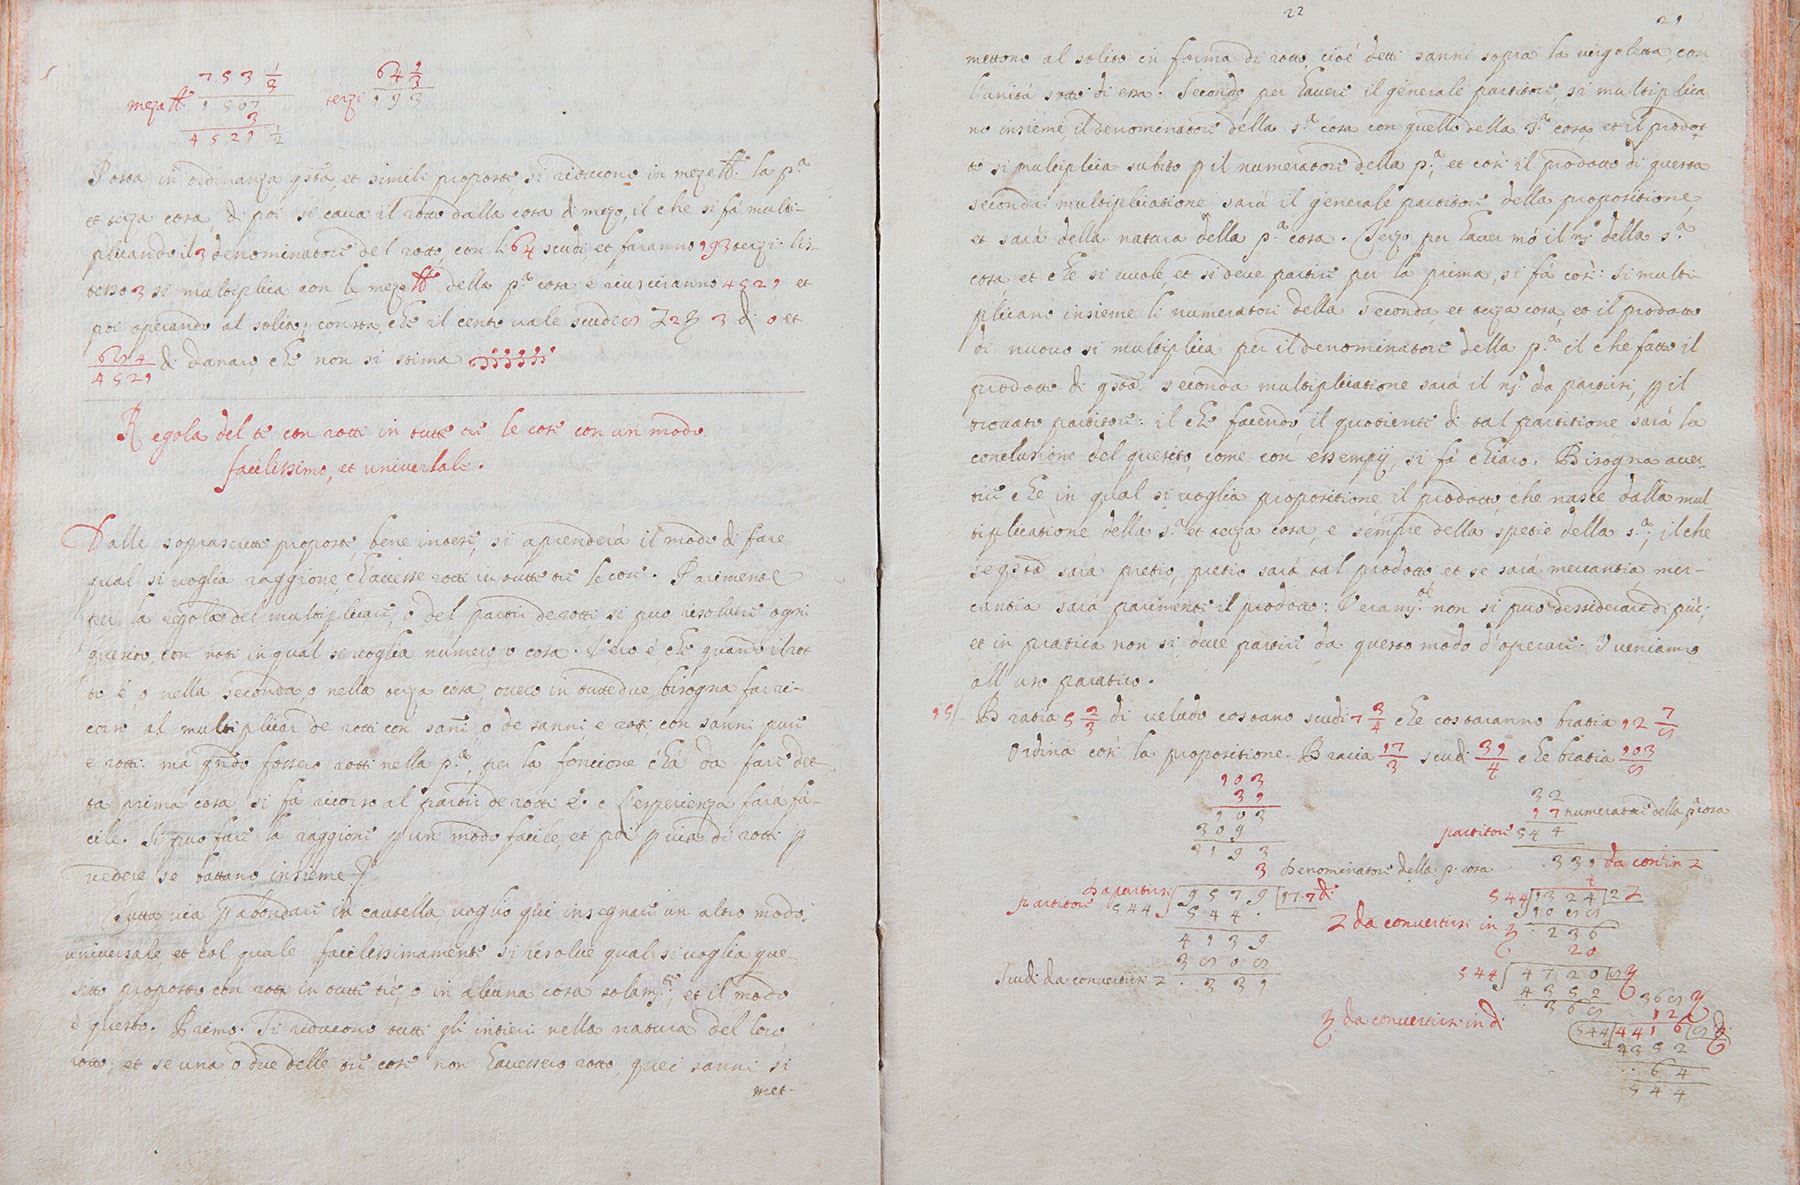 753 1/3 64 1/3
meza ℔. 1507 terzi 193
3
4521 1/2
Posta in ordinanza qsta, et simili proposte si riducono in meze ℔. la p.a
et terza cosa, di poi si cava il rotto dalla cosa di mezo, il che si fá multi-
plicando il 3 denominatore del rotto, con li 64 scudi, et faranno 193 terzi. lis
tesso 3 si multiplica con le meze ℔ della p.a cosa e riusciranno 4521 et
poi operando al solito, consta, che il cento vale scudi 8 3 di 0 et
684/4521 di danaro che non si stima
Regola del tre con rotti in tutte tre le cose con un modo
facilissimo, et universale.
Dalle soprascritte proposte, bene intese, si aprenderá il modo di fare
qual si voglia raggione, c'havesse rotti in tutte tre le cose. Primente
per la regola del multiplicare, o del partir de rotti si puo resolvere ogni
quesito, con rotti in qual si voglia numero, o cosa. Vero é, che quando il rot
to é, o nella seconda, o nella terza cosa, overo in tutte due, bisogna farri-
corso al multiplicar de rotti con sani, o de sanni e rotti, con sanni pure
e rotti: ma qndo fossero rotti nella p.a, per la foncione c'há da fare det-
ta prima cosa, si fá ricorso al partir de rotti &. e l'esperienza fará fá-
cile. Si puo fare la raggione p un modo facile, et poi p via di rotti p
vedere se battano insieme.
Tutta via p abondare in cautella, voglio qui insegnare un altro modo
universale, et col quale facilissimamente si resolve qual si voglia que-
sito proposto con rotti in tutte tré, o in alcuna cosa solam.te, et il modo
è questo. Primo. Si riducono tutti gli intieri nella natura del loro
rotto, et se una o due delle tre cose non havessero rotto, quei sanni si
met-
22
21
mettono al solito in forma di rotto, cioé detti sanni sopra la vergoletta, con
l'unitá sotto di essa. Secondo per havere il generale partitore, si multiplica
no insieme il denominatore della s.a cosa con quello della 3.a cosa et il prodot
to si multiplica subito p il numeratore della p.a, et cosi il prodotto di questa
seconda multiplicatione sará il generale partitore della propositione,
et sará della natura della p.a cosa. Terzo per haver mó il nj.o della s.a
cosa, et che si vuole, et si deve partire per la prima, si fá cosi: si multi
plicano insieme li numeratori della seconda, et terza cosa, et il prodotto
di nuovo si multiplica per il denominatore della p.a il che fatto il
prodotto di qsta seconda multiplicatione sará il nj.o da partirsi, p il
trovato partitore: il che facendo, il quotiente di tal partitione sará la
conclusione del quesito, come con essempij, si fá chiaro. Bisogna aver-
tire che in qual si voglia propositione il prodotto, che nasce dalla mul
tiplicatione della s.a et terza cosa, e sempre della spetie della s.a, il che
se qsta sará pretio, pretio sará tal prodotto, et se sará mercantia, mer-
cantia sará parimente il prodotto: Veram.te non si puo dessiderare di piú,
et in pratica non si deve partire da questo modo d'operare. Veniamo
all'uso pratico.
15/ Bratia 5 2/3 di veluto costano scudi 7 3/4 che costaranno bratia 12 7/8
Ordina cosi la propositione. Bracia 17/3 scudi 31/4 che bratia 103/8
103
31
103
309
3193
3 Denominatore della p. cosa
Da partirsi
partitore 544 9579 17.7 di
544.
4139
3808
Scudi da convertirsi .331
32
17 numeratore della p. cosa
partitore 544
.331 da con in
4
544 1324 2
1088
da convertirsi in .236
20
544 4720 8
4352
.368 368
12
da convertirsi in di 544 4416 8 di
4352
..64
544